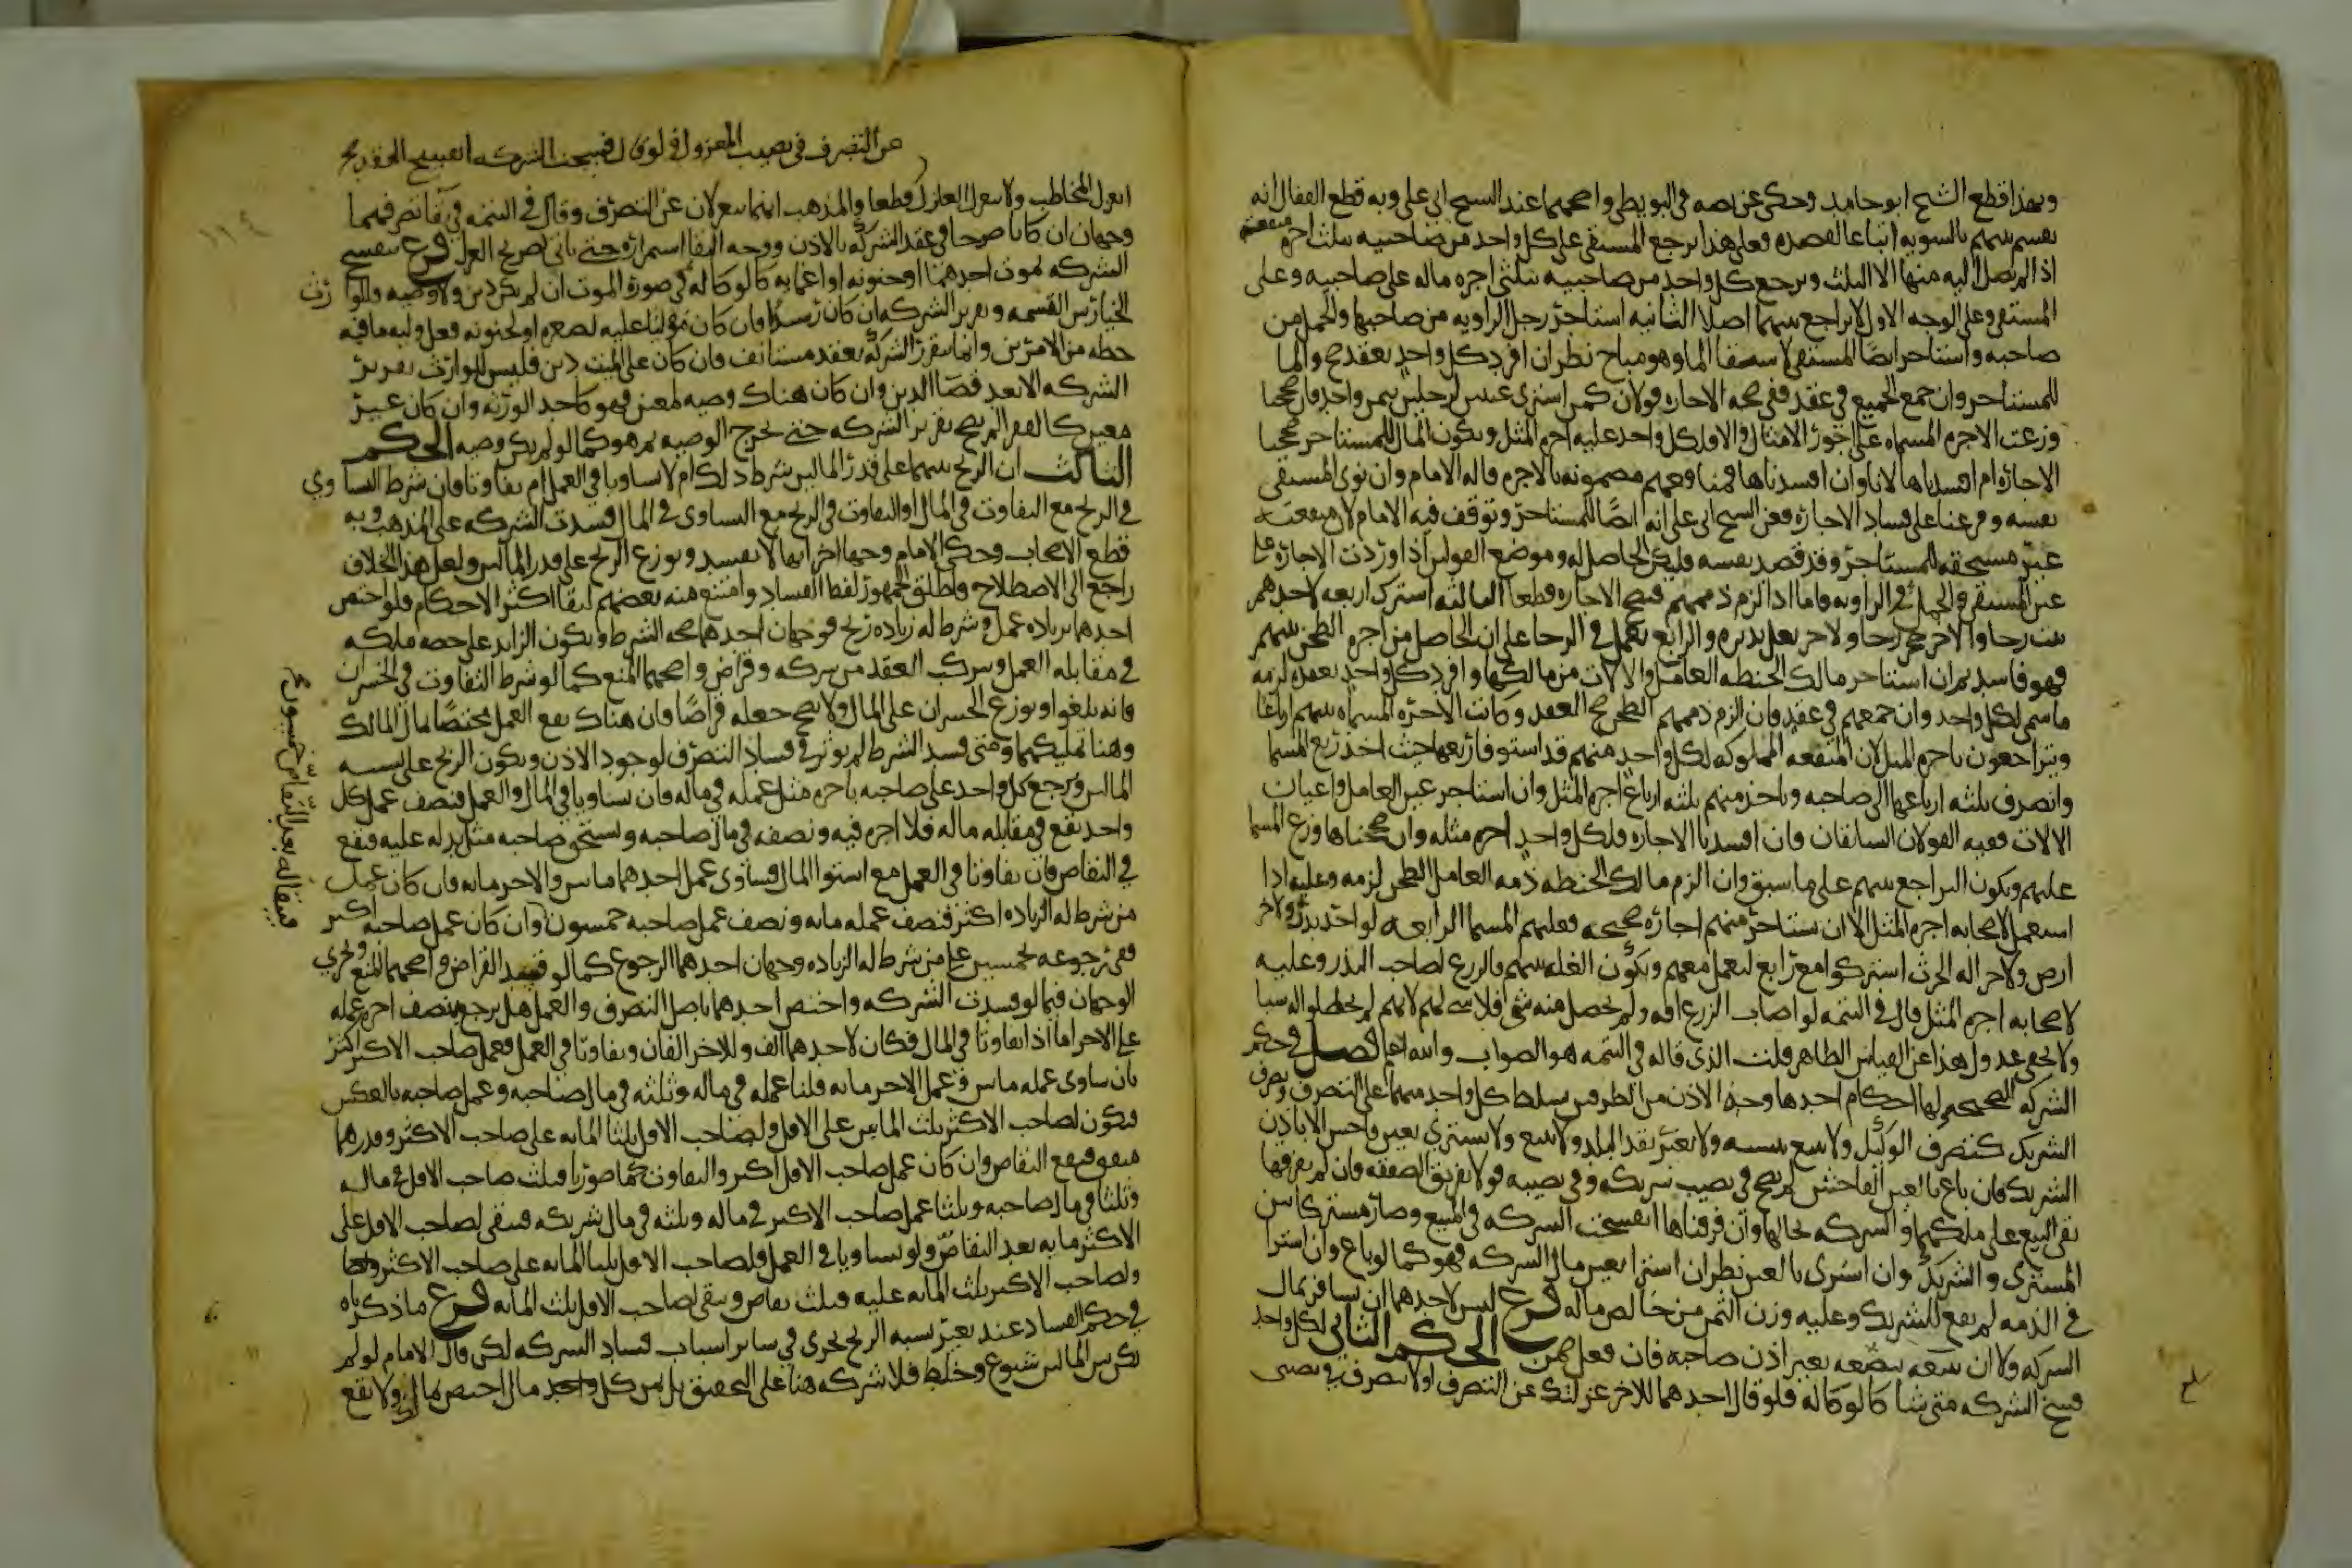 وبهذا قطع الشيخ ابو حامد وحكى عن نصه في البويطي واصحهما عند الشيخ ابي علي وبه قطع القفال انه
يقسم بينهم بالسويه اتباعا لقصده فعلى هذا يرجع المستقي على كل واحد من صاحبيه بثلث اجره منفعته
اذ لم يصل اليه منها الا الثلث ويرجع كل واحد من صاحبيه بثلثي اجره ماله على صاحبيه وعلى
المستقي وعلى الوجه الاول لا تراجع بينهما اصلا الثانيه استاجر رجل الراويه من صاحبها والجمل من
صاحبه واستاجر ايضا المستقي لاستقا الما وهو مباح نظر ان افرد كل واحد بعقد صح والما
للمستاجر وان جمع الجميع في عقد ففي صحه الاجاره قولان كمن اشترى عبدين لرجلين بثمن واحد فان صححنا
وزعت الاجره المسماه على اجور الامثال والا فلكل واحد عليه اجره المثل ويكون المال للمستاجر صححنا
الاجاره ام افسدناها لانا وان افسدناها فمنافعهم مضمونه بالاجره قاله الامام وان نوى المستقي
نفسه وفرعنا على فساد الاجاره فعن الشيخ ابي علي انه ايضا للمستاجر وتوقف فيه الامام لان منفعته
غير مستحقه للمستاجر وقد قصد نفسه فليكن الحاصل له وموضع القولين اذا وردت الاجاره على
عين المستقي والجمل والراويه فاما اذا الزم ذممهم فتصح الاجاره قطعا الثالثه اشترك اربعه لاحدهم
بيت رحا ولاخر حجر رحا ولاخر بغل يديره والرابع يعمل في الرحا على ان الحاصل من اجره الطحن بينهم
فهو فاسد ثم ان استاجر مالك الحنطه العامل والالات من مالكها وافرد كل واحد بعقد لزمه
ما سمى لكل واحد وان جمعهم في عقد فان الزم ذممهم الطحن صح العقد وكانت الاجره المسماه بينهم ارباعا
ويتراجعون باجره المثل لان المنفعه المملوكه لكل واحد منهم قد استوفا ربعها حيث اخذ ربع المسما
وانصرف ثلثه ارباعها الى صاحبه وياخذ منهم ثلثه ارباع اجره المثل وان استاجر عين العامل واعيان
الالات ففيه القولان السابقان فان افسدنا الاجاره فلكل واحد اجره مثله وان صححناها وزع المسما
عليهم ويكون التراجع بينهم على ما سبق وان الزم مالك الحنطه ذمه العامل الطحن لزمه وعليه اذا
استعمل لاصحابه اجره المثل الا ان يستاجر منهم اجاره صحيحه فعليهم المسما الرابعه لواحد بذر ولاخر
ارض ولاخر اله الحرث اشتركوا مع رابع ليعمل معهم ويكون الغله بينهم فالزرع لصاحب البذر وعليه
لاصحابه اجره المثل قال في التتمه لو اصاب الزرع افه ولم يحصل منه شي فلا شي لهم لانهم لم يحصلوا له شيا
ولا يخفى عدول هذا عن القياس الظاهر قلت الذي قاله في التتمه هو الصواب والله اعلم فصل في حكم
الشركه الصحيحه لها احكام احدها وجود الاذن من الطرفين يسلط كل واحد منهما على التصرف وتصرف
الشريك كتصرف الوكيل ولا يبيع بنسيه ولا بغير نقد البلد ولا يبيع ولا يشتري بغبن فاحش الا باذن
الشريك فان باع بالغبن الفاحش لم يصح في نصيب شريكه وفي نصيبه قولا تفريق الصفقه فان لم نفرقها
بقي المبيع على ملكهما والشركه بحالها وان فرقناها انفسخت الشركه في المبيع وصار مشتركا بين
المشتري والشريك وان اشترى بالغبن نظر ان اشترا بعين مال الشركه فهو كما لو باع وان اشترا
في الذمه لم يقع للشريك وعليه وزن الثمن من خالص ماله فرع ليس لاحدهما ان يسافر بمال
الشركه ولا ان يبيعه بضعه بغير اذن صاحبه فان فعل ضمن الحكم الثاني لكل واحد
فسخ الشركه متى شا كالوكاله فلو قال احدهما للاخر عزلتك عن التصرف او لا تتصرف في نصيبي
عن التصرف في نصيب المعزول فلو قال فسخت الشركه انفسخ العقد
انعزل المخاطب ولا ينعزل العازل قطعا والمذهب انهما ينعزلان عن التصرف وقال في التتمه في بقا تصرفهما
وجهان ان كانا صرحا في عقد الشركه بالاذن ووجه البقا استمراره حتى ياتي بصريح العزل فرع ينفسخ
الشركه بموت احدهما او جنونه او اغمايه كالوكاله في صوره الموت ان لم يكن دين ولا وصيه وللوارث
الخيار بين القسمه وتقرير الشركه ان كان رشيدا فان كان موليا عليه لصغره او لجنونه فعل وليه ما فيه
حظه من الامرين وانما تتقرر الشركه بعقد مستانف فان كان على الميت دين فليس للوارث تقرير
الشركه الا بعد قضا الدين وان كان هناك وصيه لمعين فهو كاحد الورثه وان كان غير
معين كالفقرا لم يصح تقرير الشركه حتى يخرج الوصيه ثم هو كما لو لم يكن وصيه الحكم
الثالث ان الربح بينهما على قدر المالين شرط ذلك ام لا تساويا في العمل ام تفاوتا فان شرط التساوي
في الربح مع التفاوت في المال او التفاوت في الربح مع التساوي في المال فسدت الشركه على المذهب وبه
قطع الاصحاب وحكى الامام وجها اخر انها لا تفسد ويوزع الربح على قدر المالين ولعل هذا الخلاف
راجع الى الاصطلاح فاطلق الجمهور لفظ الفساد وامتنع منه بعضهم لبقا اكثر الاحكام فلو اختص
احدهما بزياده عمل وشرط له زياده ربح فوجهان احدهما صحه الشرط ويكون الزايد على حصه ملكه
في مقابله العمل ويتركب العقد من شركه وقراض واصحهما المنع كما لو شرط التفاوت في الخسران
فانه يلغوا ويوزع الخسران على المال ولا يصح جعله قراضا فان هناك يقع العمل مختصا بمال المالك
وهنا بملكيهما ومتى فسد الشرط لم يوثر في فساد التصرف لوجود الاذن ويكون الربح على نسبه
المالين ويرجع كل واحد على صاحبه باجره مثل عمله في ماله فان تساويا في المال والعمل فنصف عمل كل
واحد يقع في مقابله ماله فلا اجره فيه ونصفه في مال صاحبه ويستحق صاحبه مثل بدله عليه فيقع
في التقاص فان تفاوتا في العمل مع استوا المال فساوى عمل احدهما مايتين والاخر مايه فان كان عمل
من شرط له الزياده اكثر فنصف عمله مايه ونصف عمل صاحبه خمسون وان كان عمل صاحبه اكثر
ففي رجوعه بخمسين على من شرط له الزياده وجهان احدهما الرجوع كما لو فسد القراض واصحهما المنع ويجري
الوجهان فيما لو فسدت الشركه واختص احدهما باصل التصرف والعمل هل يرجع بنصف اجره عمله
على الاخر اما اذا تفاوتا في المال فكان لاحدهما الف وللاخر الفان وتفاوتا في العمل فعمل صاحب الاكثر اكثر
بان ساوى عمله مايتين وعمل الاخر مايه فثلثا عمله في ماله وثلثه في مال صاحبه وعمل صاحبه بالعكس
فيكون لصاحب الاكثر ثلث المايتين على الاقل ولصاحب الاقل ثلثا المايه على صاحب الاكثر وقدرهما
متفق فيقع التقاص وان كان عمل صاحب الاقل اكثر والتفاوت كما صورنا فثلث صاحب الاقل في ماله
وثلثا في مال صاحبه وثلثا عمل صاحب الاكثر في ماله وثلثه في مال شريكه فيبقى لصاحب الاقل على
الاكثر مايه بعد التقاص ولو تساويا في العمل فلصاحب الاقل ثلثا المايه على صاحب الاكثر
ولصاحب الاكثر ثلث المايه عليه فثلث بقاص ويبقى لصاحب الاقل ثلث المايه فرع ما ذكرناه
في حكم الفساد عند تغير نسبه الربح يجري في ساير اسباب فساد الشركه لكن قال الامام لو لم
يكن بين المالين شيوع وخلط فلا شركه هنا على التحقيق بل ثمن كل واحد مال اختص بمالكه ولا يقع
فيبقى له بعد التقاص خمسون صح
١١٤